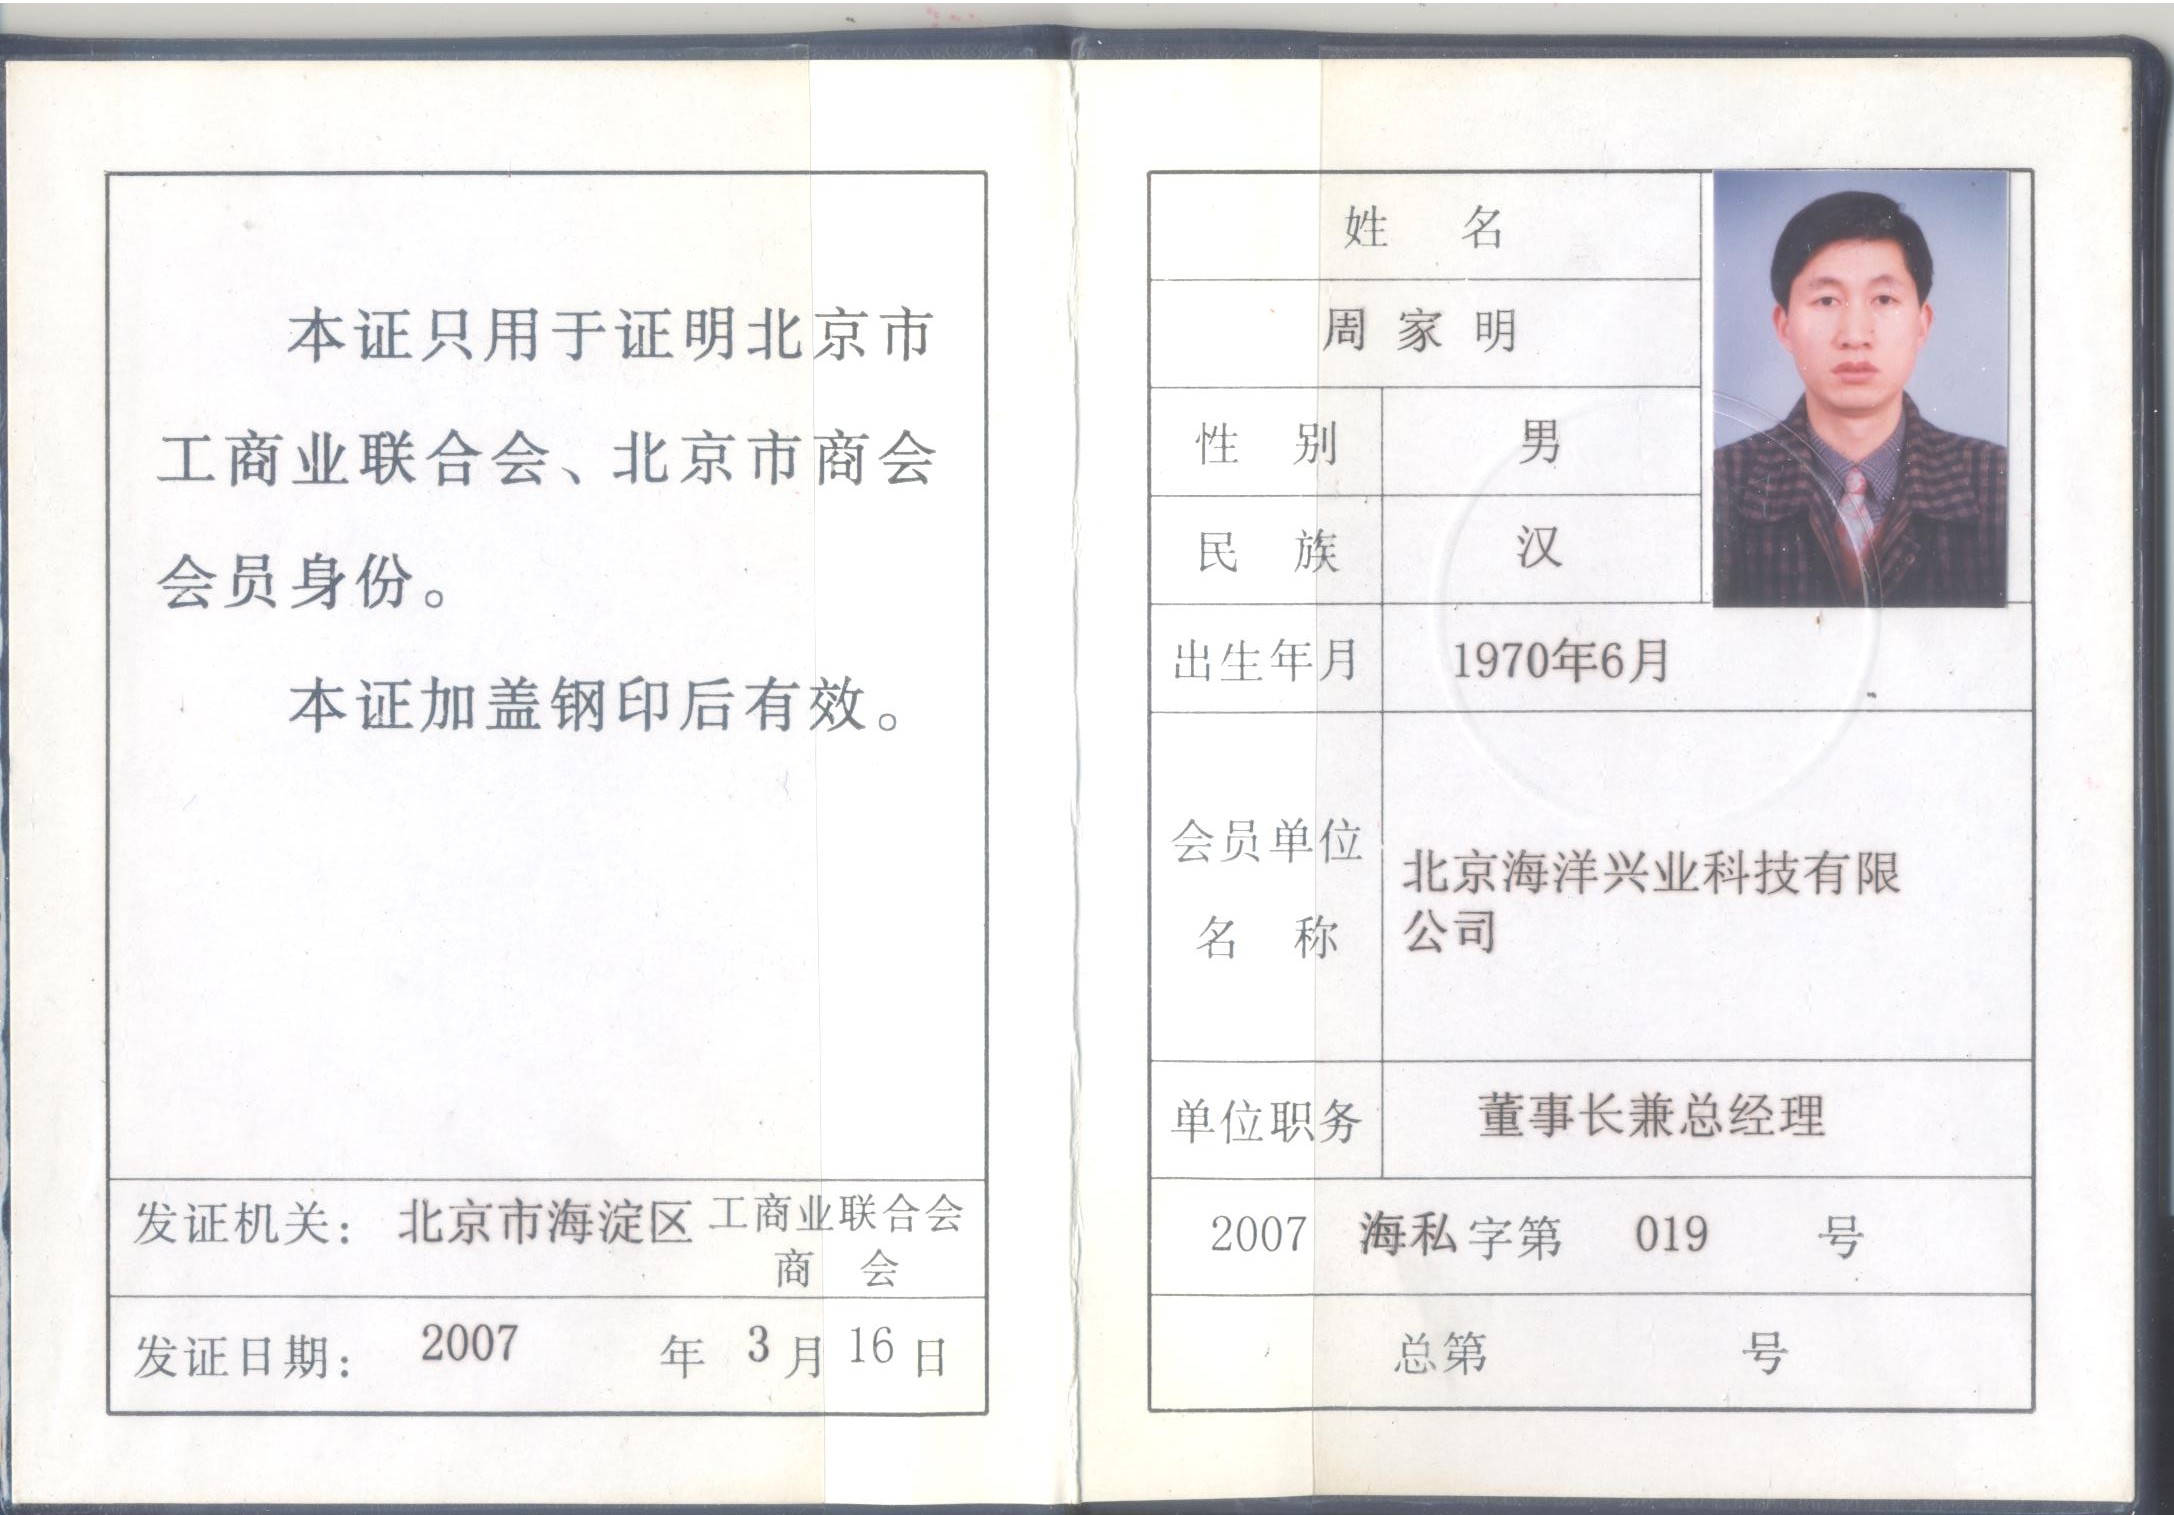 本证只用于证明北京市
工商业联合会、北京市商会
会员身份。
本证加盖钢印后有效。
发证机关： 北京市海淀区 工商业联合会
商 会
发证日期： 2007 年 3 月 16 日
姓 名
周 家 明
性 别 男
民 族 汉
出生年月 1970年6月
会员单位
名 称
北京海洋兴业科技有限
公司
单位职务 董事长兼总经理
2007 海私 字第 019 号
总第 号